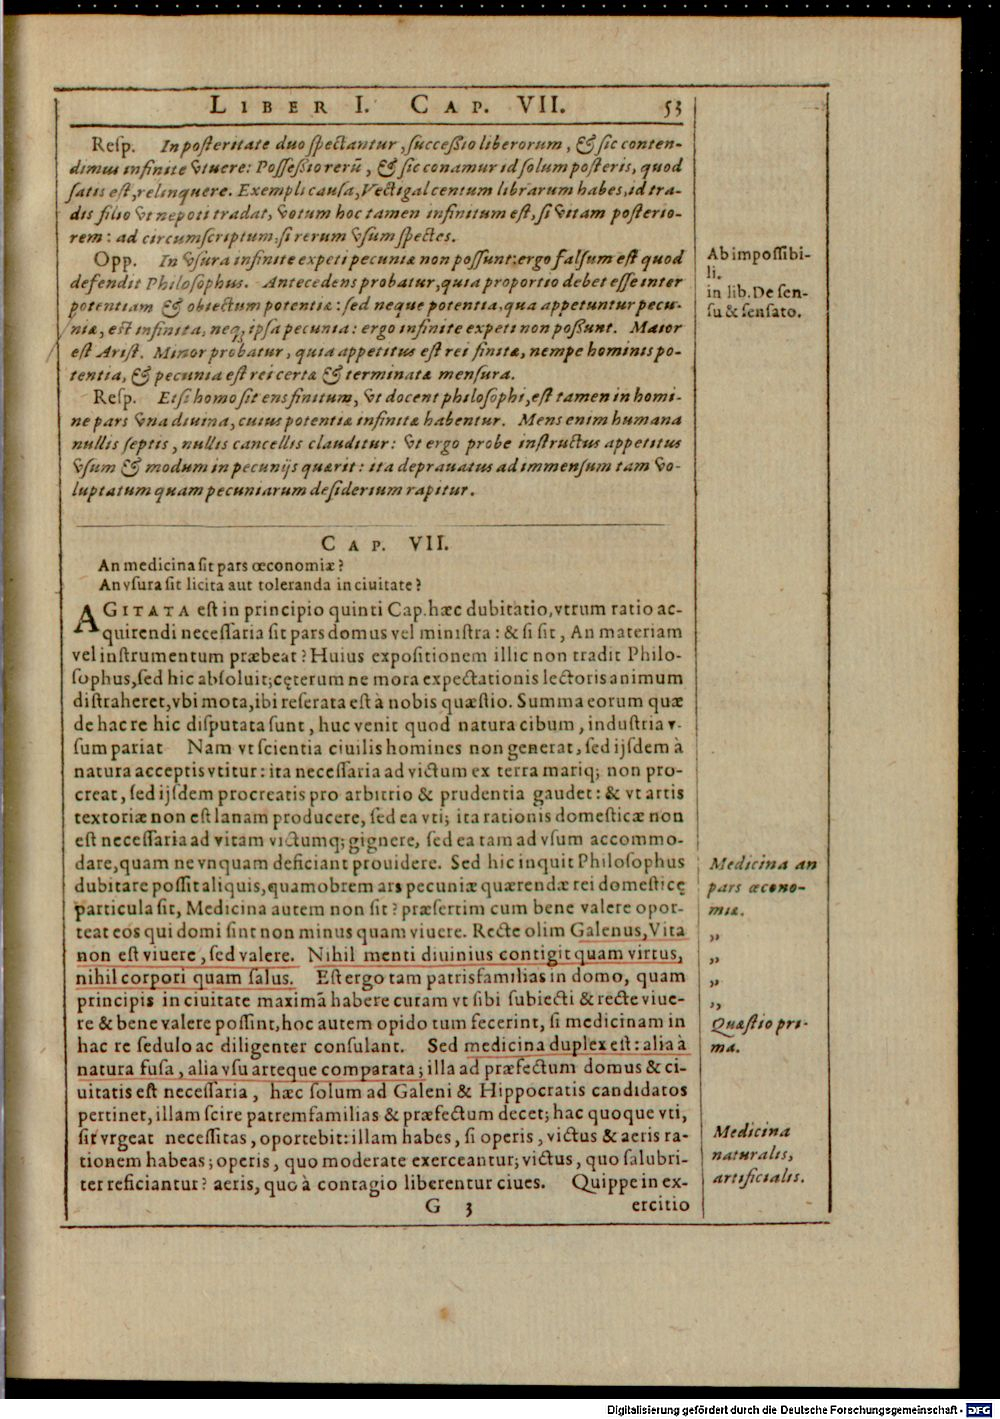 LIBER I. CAP. VII. 53
Reſp. In poſteritate duo ſpectantur, ſucceſſio liberorum, & ſic conten-
dimus infinite viuere: Poſſeſſio rerū, & ſic conamur id ſolum poſteris, quod
ſatis eſt, relinquere. Exempli cauſa, Vectigal centum librarum habes, id tra-
dis filio vt nepoti tradat, votum hoc tamen infinitum eſt, ſi vitam poſterio-
rem: ad circumſcriptum, ſi rerum vſum ſpectes.
Opp. In vſura infinite expeti pecuniæ non poſſunt: ergo falſum eſt quod
defendit Philoſophus. Antecedens probatur, quia proportio debet eſſe inter
potentiam & obiectum potentiæ: ſed neque potentia, qua appetuntur pecu-
niæ, eſt infinita, neq; ipſa pecunia: ergo infinite expeti non poſſunt. Maior
eſt Ariſt. Minor probatur, quia appetitus eſt rei finitæ, nempe hominis po-
tentia, & pecunia eſt rei certa & terminata menſura.
Reſp. Etſi homo ſit ens finitum, vt docent philoſophi, eſt tamen in homi-
ne pars vna diuina, cuius potentiæ infinitæ habentur. Mens enim humana
nullis ſeptis, nullis cancellis clauditur: vt ergo probe inſtructus appetitus
vſum & modum in pecunijs quærit: ita deprauatus ad immenſum tam vo-
luptatum quam pecuniarum deſiderium rapitur.
Ab impoſſibi-
li.
in lib. De ſen-
ſu & ſenſato.
CAP. VII.
An medicina ſit pars œconomiæ?
An vſura ſit licita aut toleranda in ciuitate?
AGITATA eſt in principio quinti Cap. hæc dubitatio, vtrum ratio ac-
quirendi neceſſaria ſit pars domus vel miniſtra: & ſi ſit, An materiam
vel inſtrumentum præbeat? Huius expoſitionem illic non tradit Philo-
ſophus, ſed hic abſoluit; cęterum ne mora expectationis lectoris animum
diſtraheret, vbi mota, ibi reſerata eſt à nobis quæſtio. Summa eorum quæ
de hac re hic diſputata ſunt, huc venit quod natura cibum, induſtria v-
ſum pariat Nam vt ſcientia ciuilis homines non generat, ſed ijſdem à
natura acceptis vtitur: ita neceſſaria ad victum ex terra mariq; non pro-
creat, ſed ijſdem procreatis pro arbitrio & prudentia gaudet: & vt artis
textoriæ non eſt lanam producere, ſed ea vti; ita rationis domeſticæ non
eſt neceſſaria ad vitam victumq; gignere, ſed ea tam ad vſum accommo-
dare, quam ne vnquam deficiant prouidere. Sed hic inquit Philoſophus
dubitare poſſit aliquis, quamobrem ars pecuniæ quærendæ rei domeſticę
particula ſit, Medicina autem non ſit? præſertim cum bene valere opor-
teat eos qui domi ſint non minus quam viuere. Recte olim Galenus, Vita
non eſt viuere, ſed valere. Nihil menti diuinius contigit quam virtus,
nihil corpori quam ſalus. Eſt ergo tam patrisfamilias in domo, quam
principis in ciuitate maximā habere curam vt ſibi ſubiecti & recte viue-
re & bene valere poſſint, hoc autem opido tum fecerint, ſi medicinam in
hac re ſedulo ac diligenter conſulant. Sed medicina duplex eſt: alia à
natura fuſa, alia vſu arteque comparata; illa ad præfectum domus & ci-
uitatis eſt neceſſaria, hæc ſolum ad Galeni & Hippocratis candidatos
pertinet, illam ſcire patremfamilias & præfectum decet; hac quoque vti,
ſit vrgeat neceſſitas, oportebit: illam habes, ſi operis, victus & aeris ra-
tionem habeas; operis, quo moderate exerceantur; victus, quo ſalubri-
ter reficiantur? aeris, quo à contagio liberentur ciues. Quippe in ex-
G 3 ercitio
Medicina an
pars œcono-
miæ.
„
„
„
„
Quæſtio pri-
ma.
Medicina
naturalis,
artificialis.
Digitalisierung gefördert durch die Deutsche Forschungsgemeinschaft - DFG